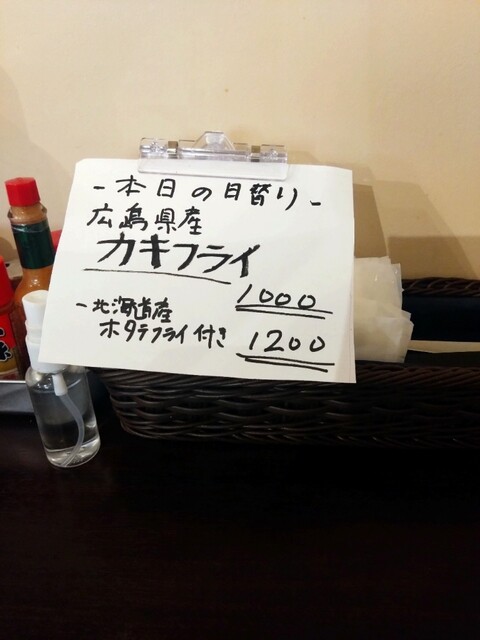 -本日の日替り-
広島県産
カキフライ
1000
-北海道産
ホタテフライ付き 1200